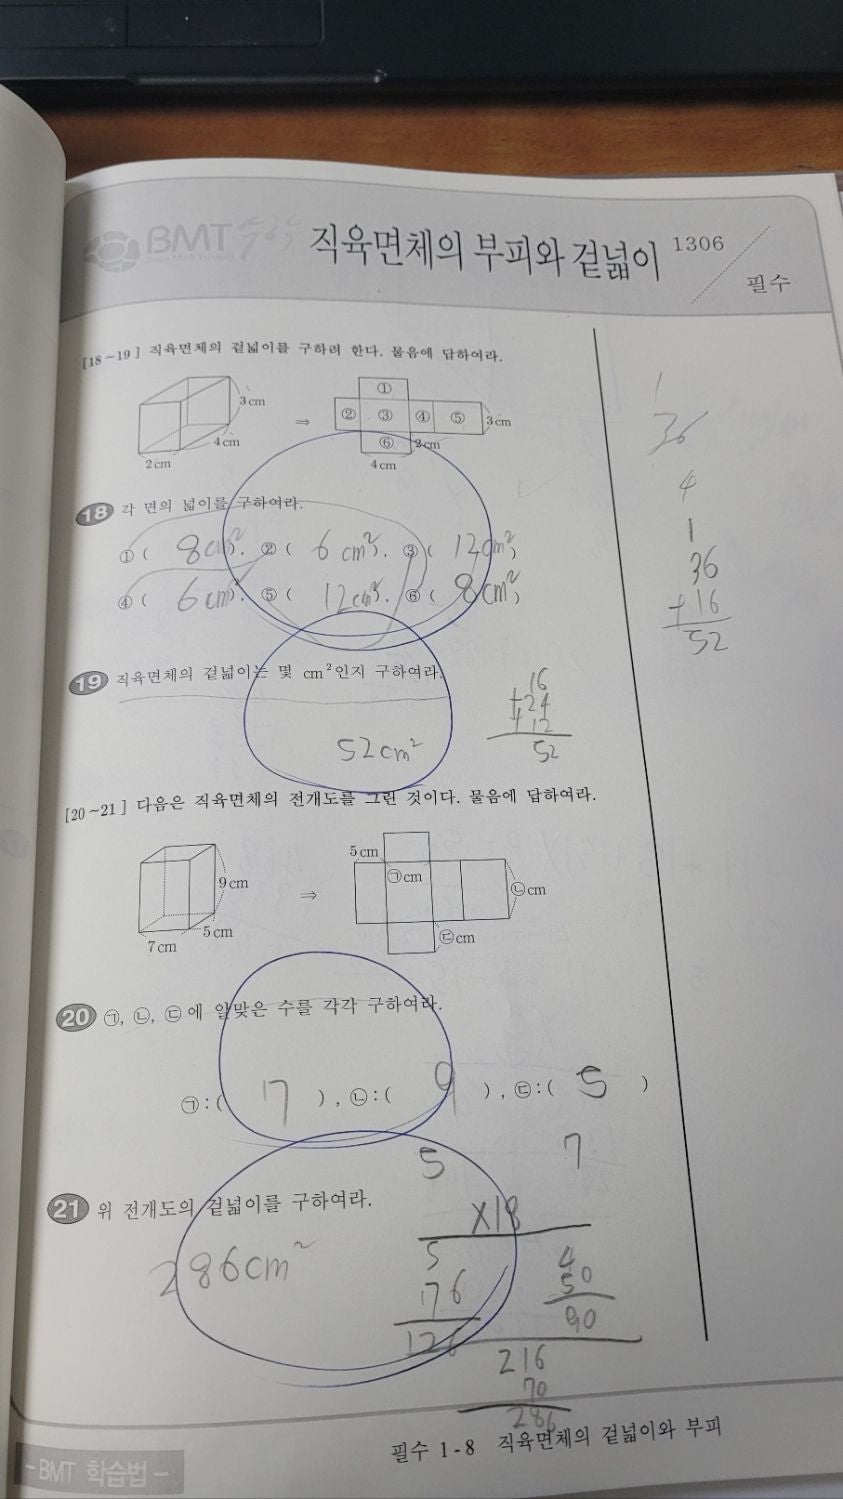 BMT 수학
직육면체의 부피와 겉넓이 1306
필수
[18~19] 직육면체의 겉넓이를 구하려 한다. 물음에 답하여라.
3cm
4cm
2cm
⇒
①
② ③ ④ ⑤
⑥
3cm
2cm
4cm
18 각 면의 넓이를 구하여라.
①( 8cm²), ②( 6cm²), ③( 12cm²)
④( 6cm²), ⑤( 12cm²), ⑥( 8cm²)
19 직육면체의 겉넓이는 몇 cm²인지 구하여라.
52cm²
16
+24
+12
52
1
36
4
1
36
+16
52
[20~21] 다음은 직육면체의 전개도를 그린 것이다. 물음에 답하여라.
9cm
5cm
7cm
⇒
5cm
㉠cm
㉡cm
㉢cm
20 ㉠, ㉡, ㉢에 알맞은 수를 각각 구하여라.
㉠:( 17 ), ㉡:( 9 ), ㉢:( 5 )
5 7
21 위 전개도의 겉넓이를 구하여라.
286cm²
×18
5 4
176 50
126 90
216
70
286
필수 1-8 직육면체의 겉넓이와 부피
-BMT 학습법-